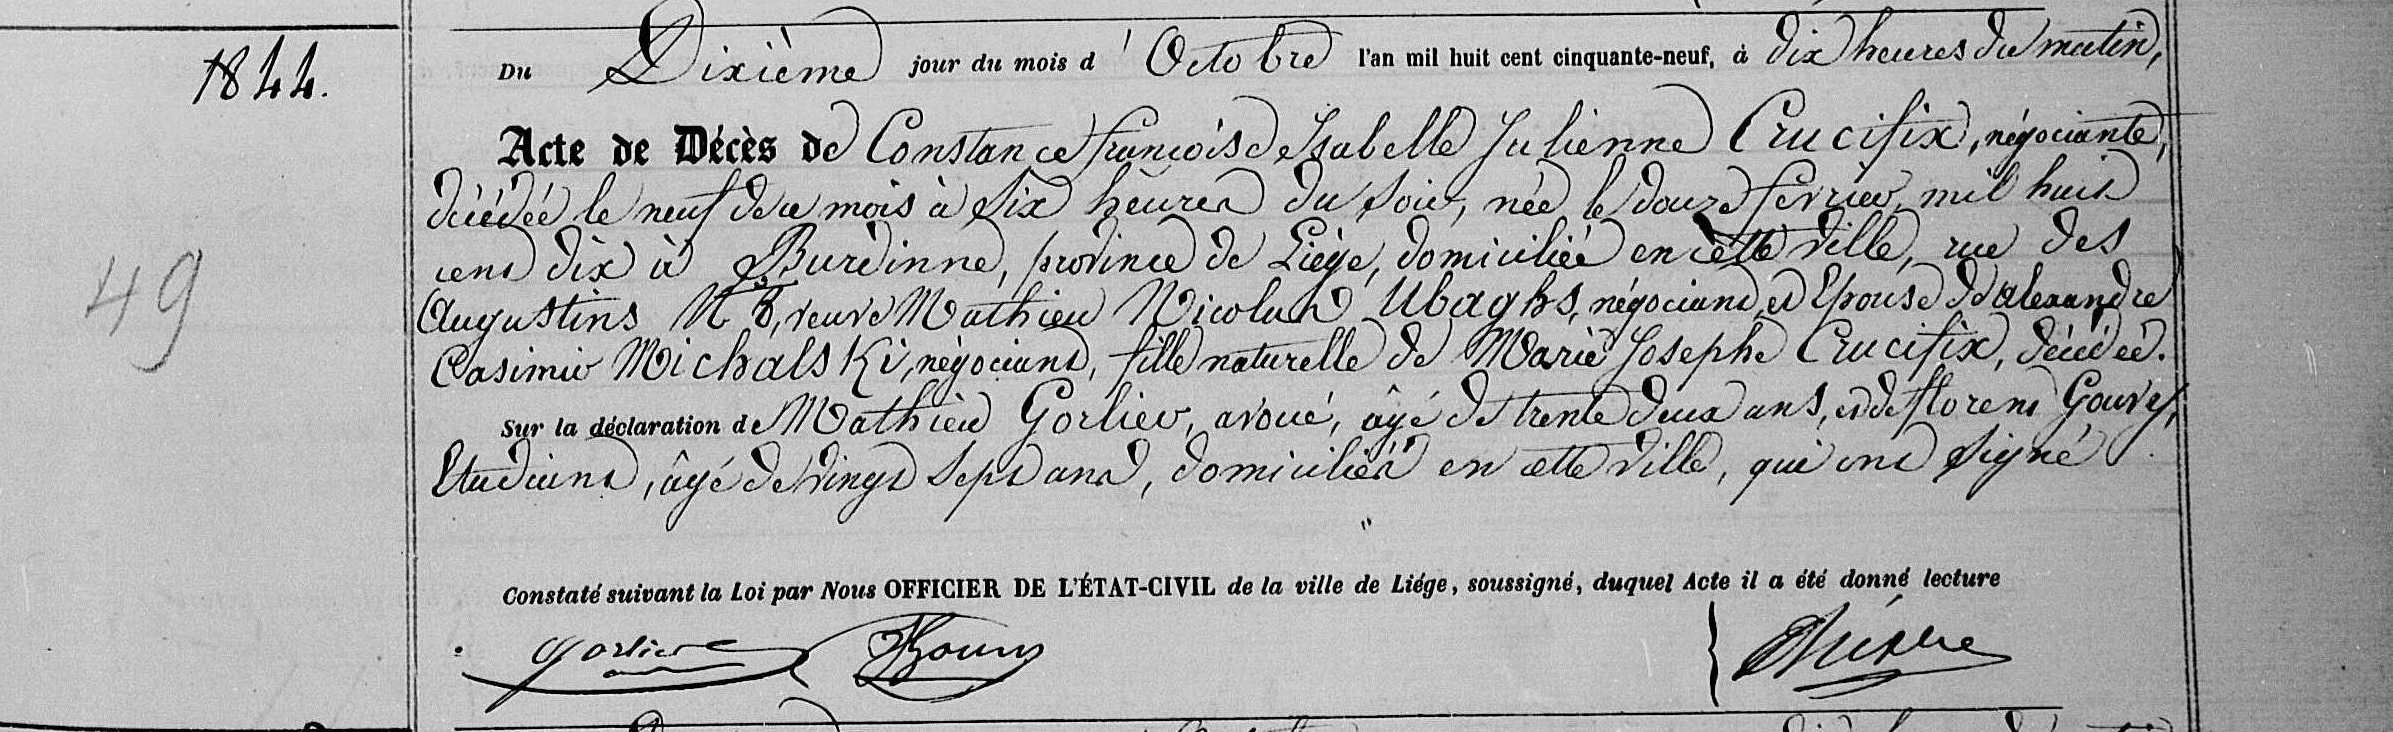 1844.
Du Dixième jour du mois d'Octobre l'an mil huit cent cinquante-neuf, à dix heures du matin,
Acte de Décès de Constance françoise Isabelle Julienne Crucifix, négociante,
décédée le neuf de ce mois à six heures du soir, née le douze fevrier mil huit
cent dix à Burdinne, province de Liège, domiciliée en cette ville, rue des
49
Augustins N° 8, veuve Mathieu Nicolas Ubaghs, négociant, et Epouse de alexandre
Casimir Michalski, négociant, fille naturelle de Marie Josephe Crucifix, décédée.
Sur la déclaration de Mathieu Gorlier, avoué, âgé de trente deux ans, et de florent Gouvy,
Etudiant, âgé de vingt sept ans, domiciliés en cette ville, qui ont signé
"
Constaté suivant la Loi par Nous OFFICIER DE L'ÉTAT-CIVIL de la ville de Liége, soussigné, duquel Acte il a été donné lecture
Gorlier